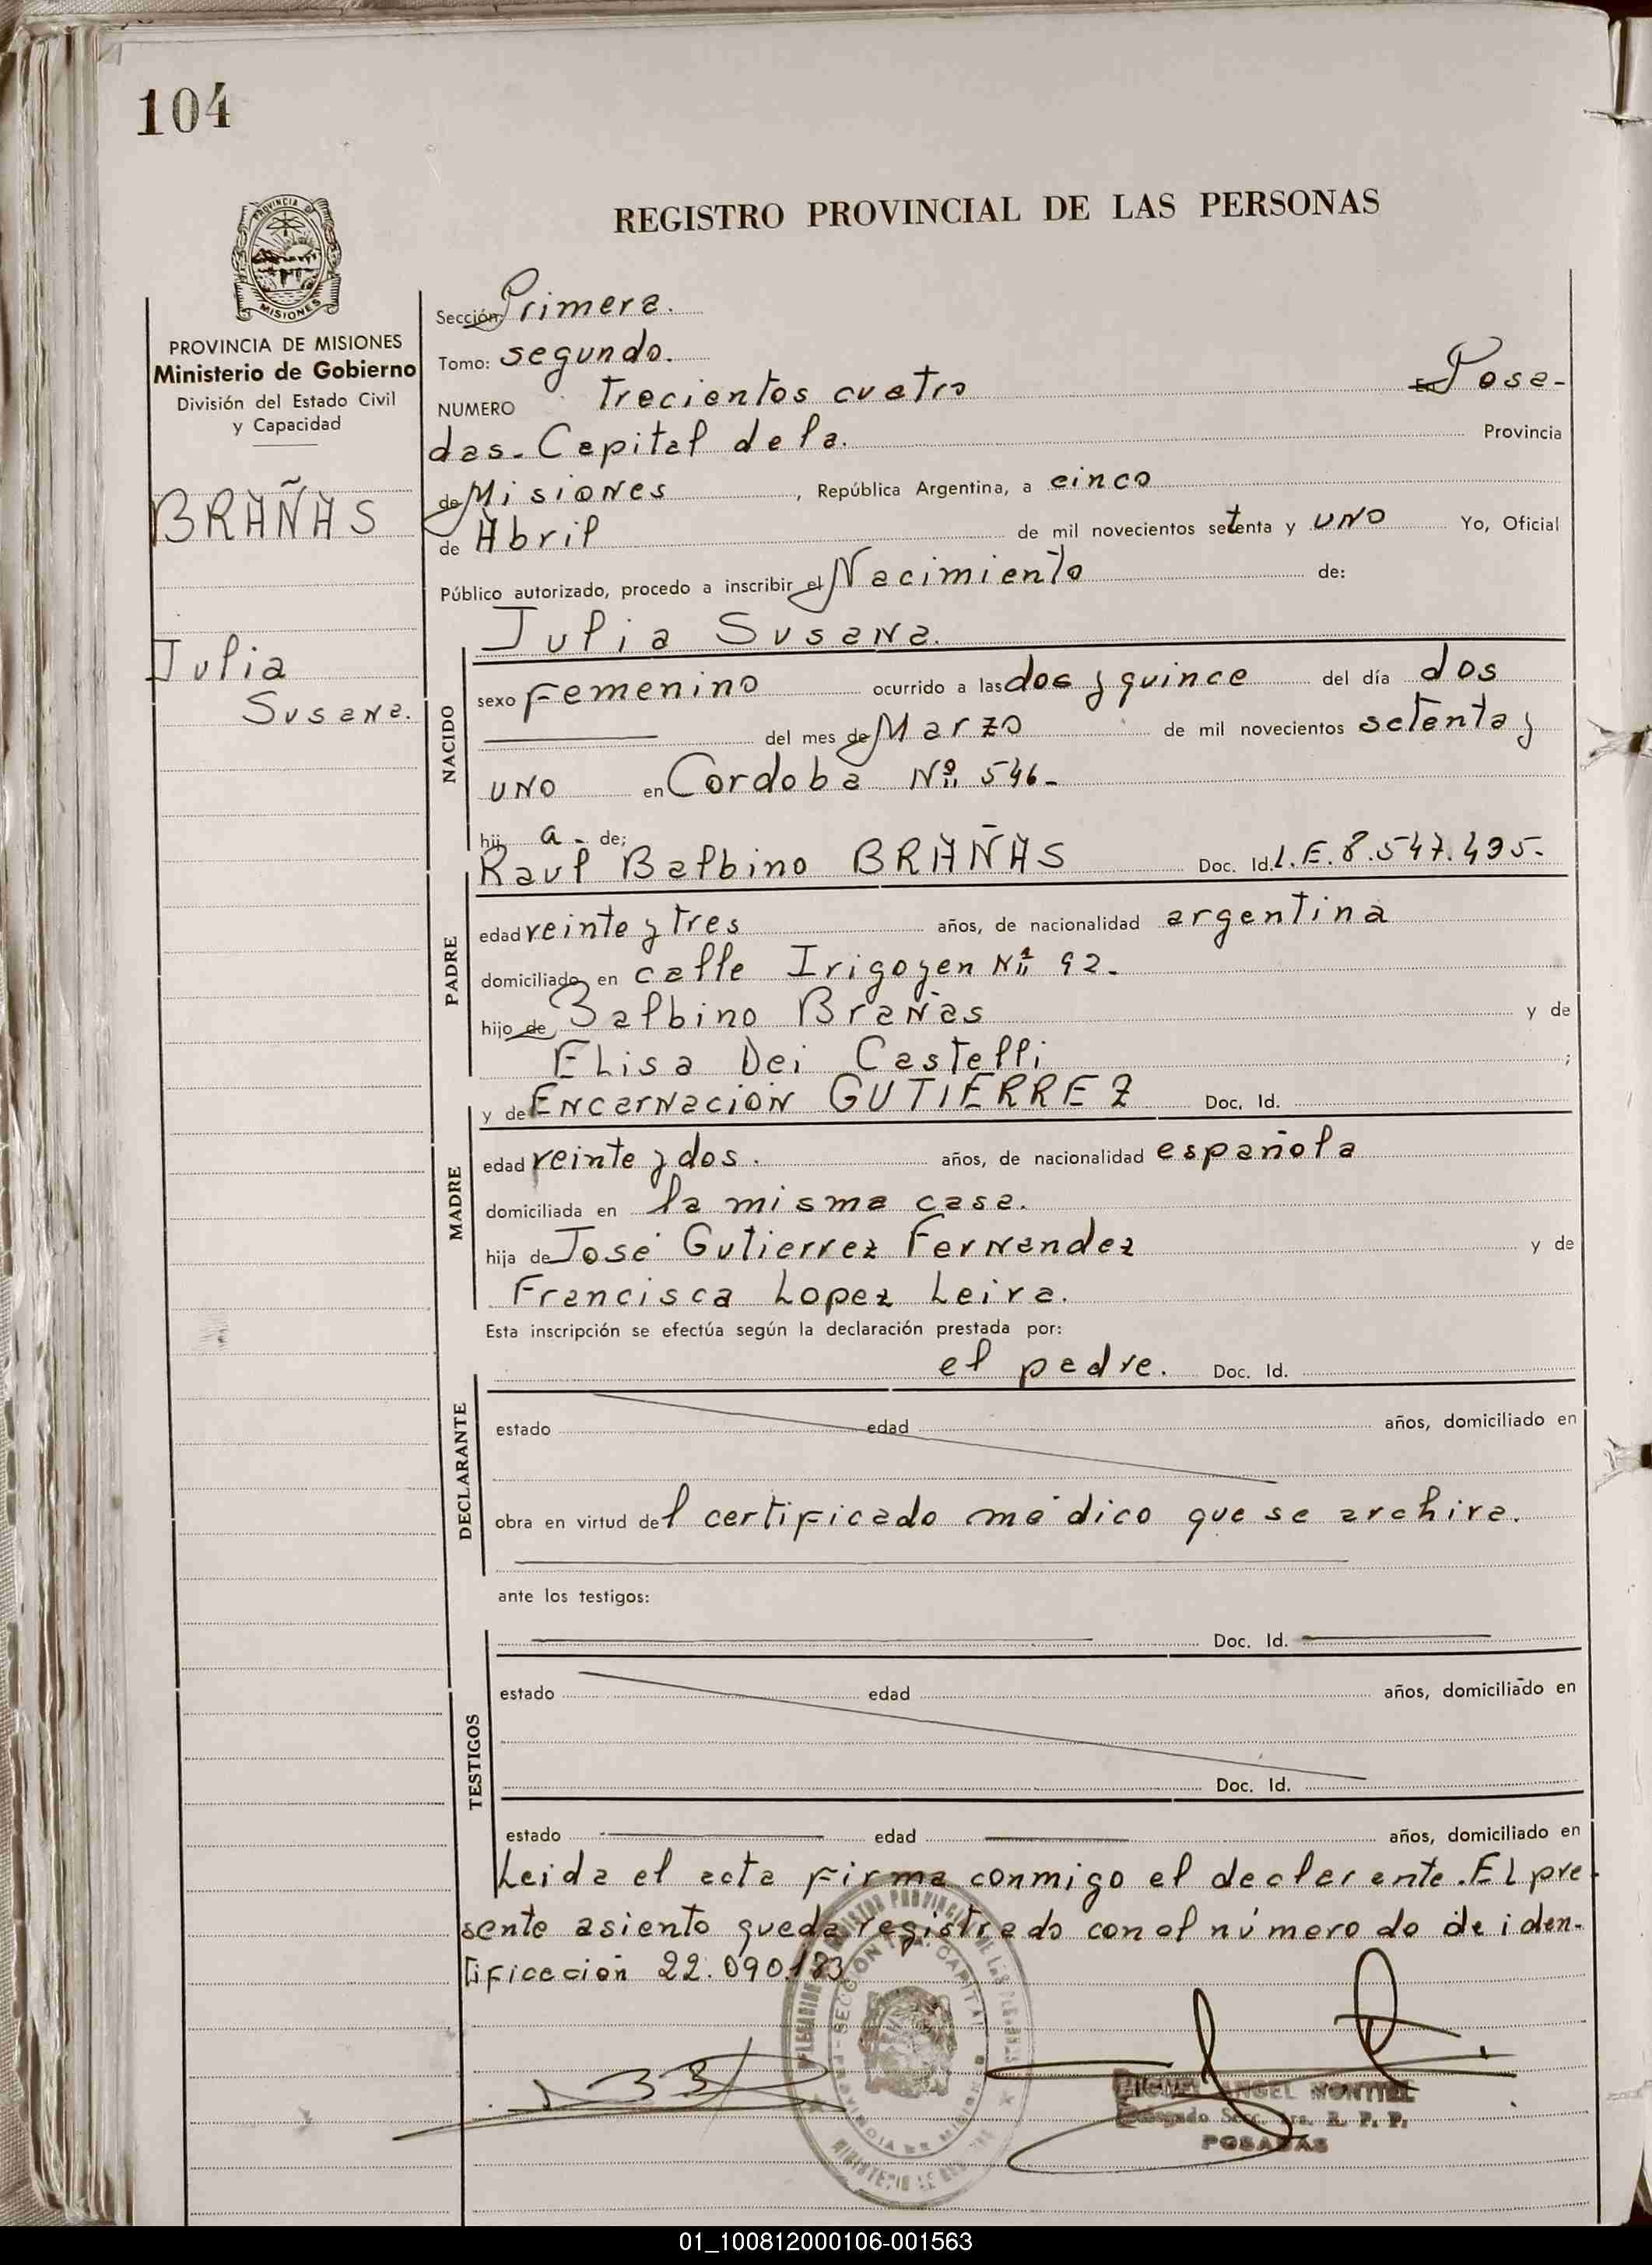 104
PROVINCIA DE
MISIONES
REGISTRO PROVINCIAL DE LAS PERSONAS
PROVINCIA DE MISIONES
Ministerio de Gobierno
División del Estado Civil
y Capacidad
BRAÑAS
Julia
Susana.
Sección Primera.
Tomo: segundo.
NUMERO Trecientos cuatro En Posa-
das. Capital de la. Provincia
de Misiones , República Argentina, a cinco
de Abril de mil novecientos setenta y uno Yo, Oficial
Público autorizado, procedo a inscribir el Nacimiento de:
Julia Susana.
NACIDO
sexo Femenino ocurrido a las dos y quince del día dos
del mes de Marzo de mil novecientos setenta y
uno en Cordoba Nº 546-
hij a - de;
Raul Balbino BRAÑAS Doc. Id. L.E. 8.547.495-
PADRE
edad veinte y tres años, de nacionalidad argentina
domiciliado en calle Irigoyen Nº 92-
hijo de Balbino Brañas y de
Elisa Dei Castelli ;
y de Encarnación GUTIERREZ Doc. Id.
MADRE
edad veinte y dos. años, de nacionalidad española
domiciliada en la misma casa.
hija de José Gutierrez Fernandez y de
Francisca Lopez Leira.
Esta inscripción se efectúa según la declaración prestada por:
el padre. Doc. Id.
DECLARANTE
estado edad años, domiciliado en
obra en virtud del certificado médico que se archiva.
ante los testigos:
Doc. Id.
TESTIGOS
estado edad años, domiciliado en
Doc. Id.
estado edad años, domiciliado en
Leida el acta firma conmigo el declarante. El pre
sente asiento queda registrado con el número de iden-
tificación 22.090.183
MIGUEL ANGEL MONTIEL
Delegado Secc. 1ra. R. P. P.
POSADAS
01_100812000106-001563